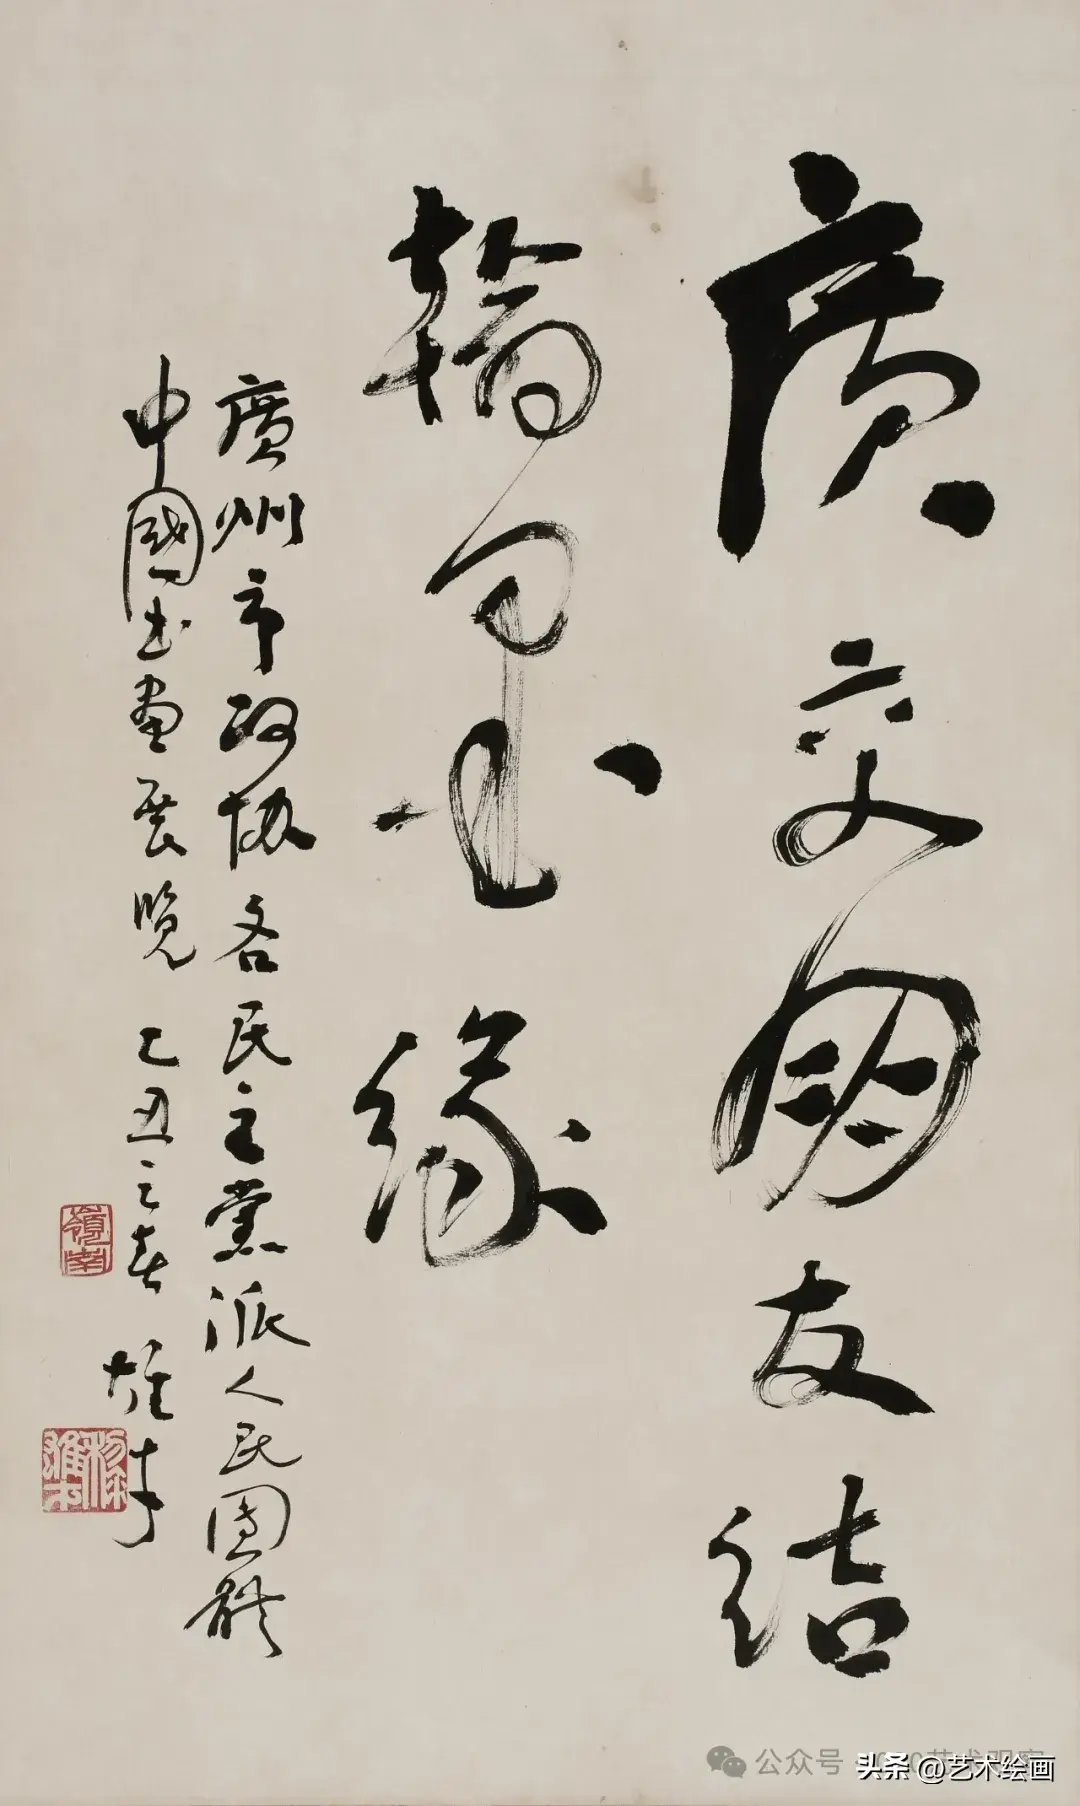 廣交朋友結
翰墨缘
廣州市政协各民主黨派人民團體
中國书畫展覽 乙丑之春 雄才
嶺南
黎雄才
公众号
头条 @艺术绘画